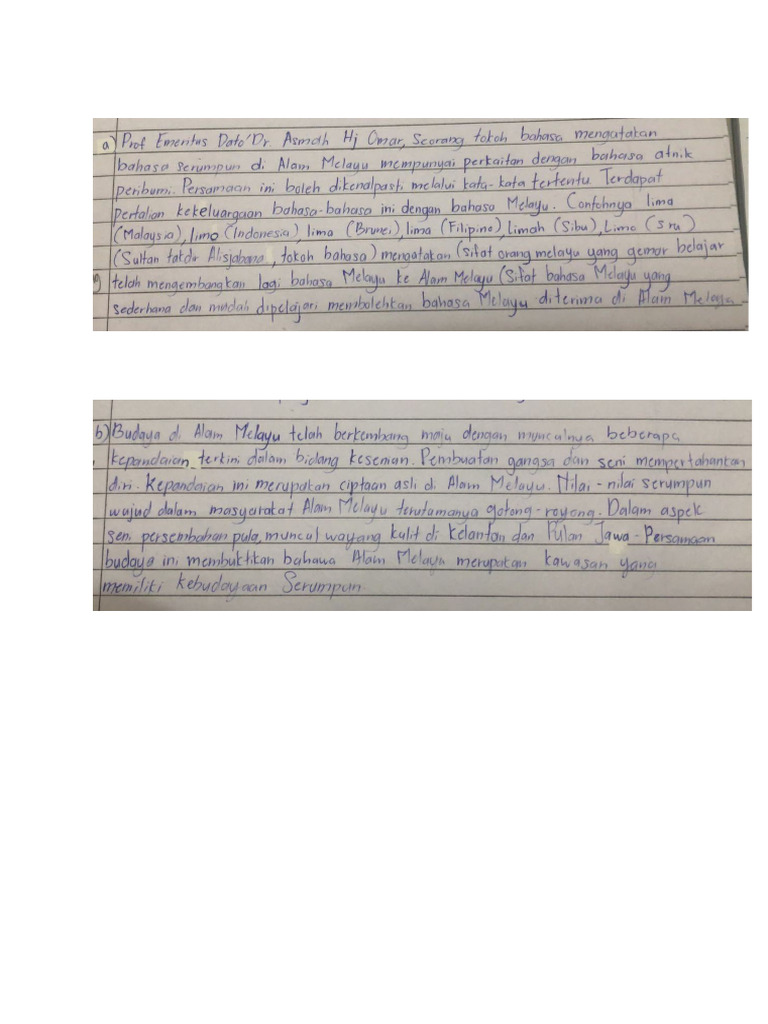 a) Prof Emeritus Dato' Dr. Asmah Hj Omar, Seorang tokoh bahasa mengatakan
bahasa serumpun di Alam Melayu mempunyai perkaitan dengan bahasa atnik
peribumi. Persamaan ini boleh dikenalpasti melalui kata-kata tertentu. Terdapat
pertalian kekeluargaan bahasa-bahasa ini dengan bahasa Melayu. Contohnya lima
(Malaysia), limo (Indonesia), lima (Brunei), lima (Filipine), Limah (Sibu), Limo
(Sultan takdir Alisjabana, tokoh bahasa) mengatakan (sifat orang melayu yang gemar belajar
telah mengembangkan lagi bahasa Melayu ke Alam Melayu (Sifat bahasa Melayu yang
sederhana dan mudah dipelajari membolehkan bahasa Melayu diterima di Alam Melayu
b) Budaya di Alam Melayu telah berkembang maju dengan munculnya beberapa
kepandaian terkini dalam bidang kesenian. Pembuatan gangsa dan seni mempertahankan
diri. Kepandaian ini merupakan ciptaan asli di Alam Melayu. Nilai-nilai serumpun
wujud dalam masyarakat Alam Melayu terutamanya gotong-royong. Dalam aspek
seni persembahan pula, muncul wayang kulit di Kelantan dan Pulan Jawa. Persamaan
budaya ini membuktikan bahawa Alam Melayu merupakan kawasan yang
memiliki kebudayaan Serumpun